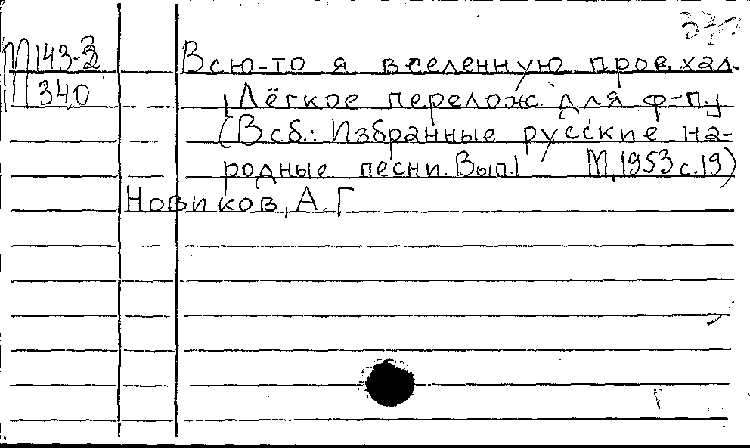 М143-3
340
Всю-то я вселенную проехал.
Лёгкое перелож. для ф-п.
(В сб.: Избранные русские на-
родные песни. Вып.1 М, 1953 с.19)
Новиков, А. Г